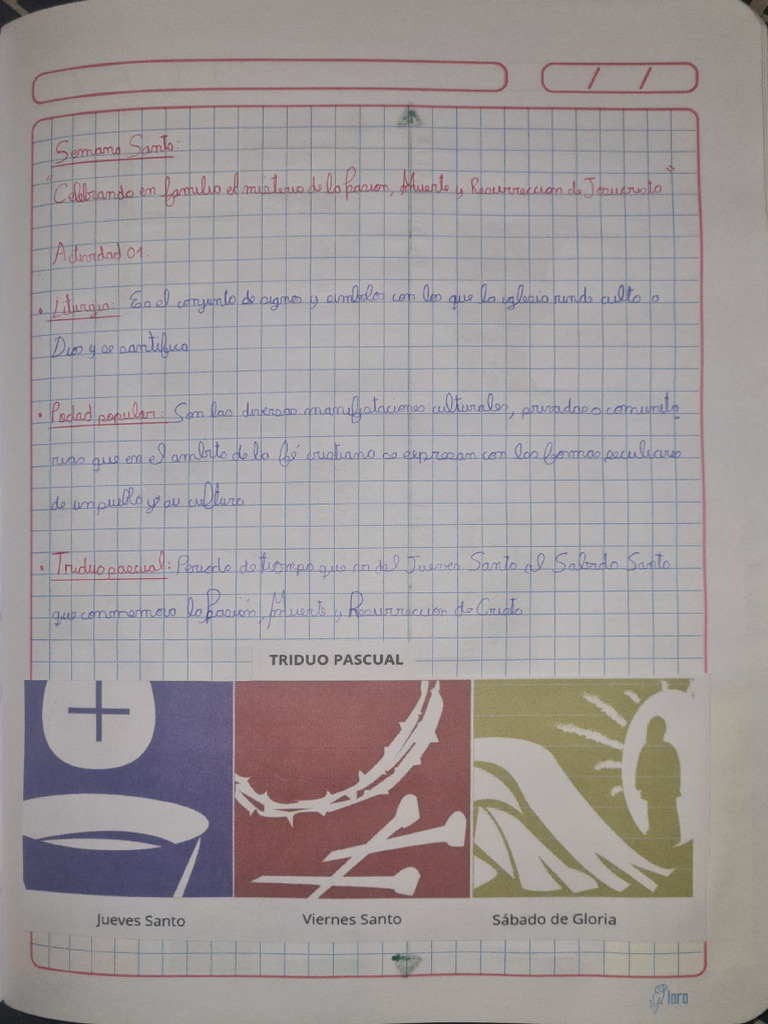 Semana Santa:
"Celebrando en familia el misterio de la Pasion, Muerte y Resurreccion de Jesucristo"
Actividad 01:
• Liturgia: Es el conjunto de signos y simbolos con los que la iglesia rinde culto a
Dios y se santifica
• Piedad popular: Son las diversas manifestaciones culturales, privadas o comunita
rias que en el ambito de la fé cristiana se expresan con las formas peculiares
de un pueblo y su cultura
• Triduo pascual: Periodo de tiempo que va del Jueves Santo al Sabado Santo
que conmemora la Pasión, Muerte y Resurreccion de Cristo
TRIDUO PASCUAL
Jueves Santo
Viernes Santo
Sábado de Gloria
loro